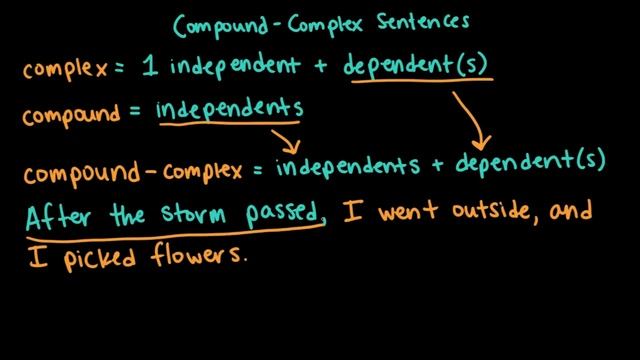 Compound-Complex Sentences
complex = 1 independent + dependent(s)
compound = independents
compound-complex = independents + dependent(s)
After the storm passed, I went outside, and
I picked flowers.